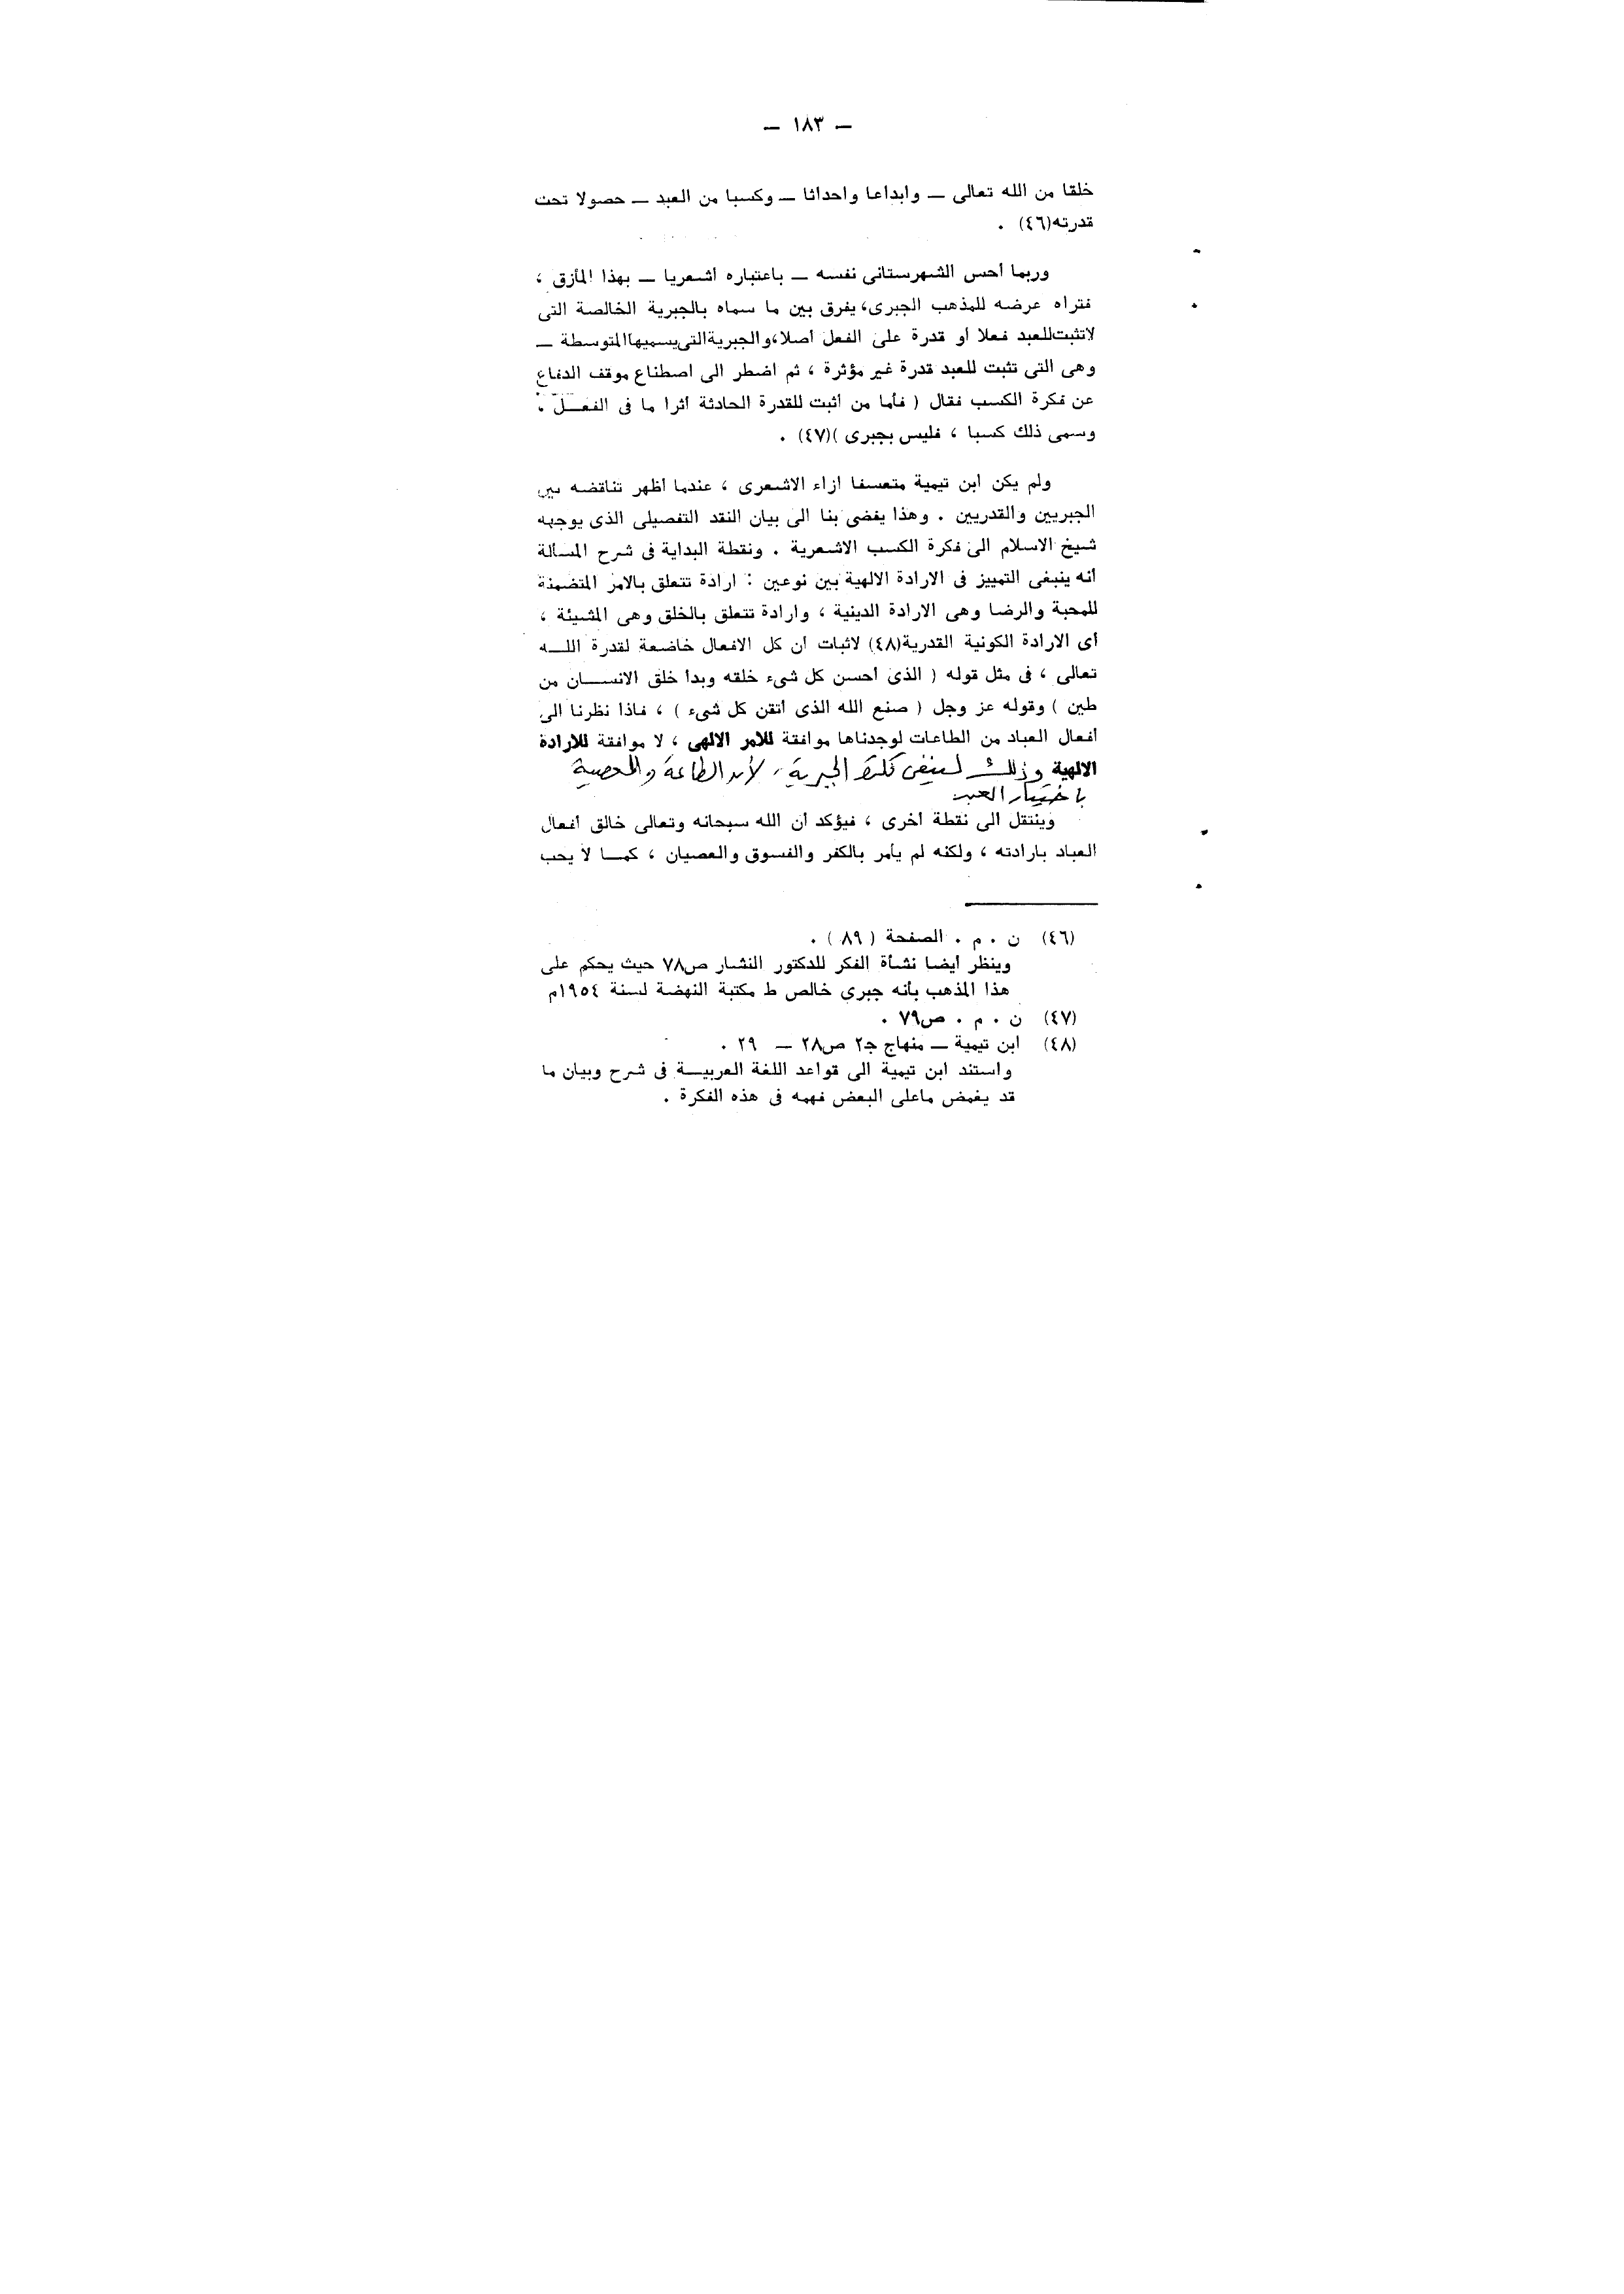 — ١٨٣ —
خلقا من الله تعالى — وابداعا واحداثا — وكسبا من العبد — حصولا تحت
قدرته(٤٦) .
وربما أحس الشهرستانى نفسه — باعتباره أشعريا — بهذا المأزق ،
فتراه عرضه للمذهب الجبرى، يفرق بين ما سماه بالجبرية الخالصة التى
لاتثبت للعبد فعلا أو قدرة على الفعل أصلا، والجبرية التى يسميها المتوسطة —
وهى التى تثبت للعبد قدرة غير مؤثرة ، ثم اضطر الى اصطناع موقف الدفاع
عن فكرة الكسب فقال ( فأما من أثبت للقدرة الحادثة أثرا ما فى الفعـــل .
وسمى ذلك كسبا ، فليس بجبرى )(٤٧) .
ولم يكن ابن تيمية متعسفا ازاء الاشعرى ، عندما أظهر تناقضه بين
الجبريين والقدريين . وهذا يفضى بنا الى بيان النقد التفصيلى الذى يوجهه
شيخ الاسلام الى فكرة الكسب الاشعرية . ونقطة البداية فى شرح المسألة
أنه ينبغى التمييز فى الارادة الالهية بين نوعين : ارادة تتعلق بالامر المتضمنة
للمحبة والرضا وهى الارادة الدينية ، وارادة تتعلق بالخلق وهى المشيئة ،
أى الارادة الكونية القدرية(٤٨) لاثبات أن كل الافعال خاضعة لقدرة اللـــه
تعالى ، فى مثل قوله ( الذى أحسن كل شىء خلقه وبدأ خلق الانســـان من
طين ) وقوله عز وجل ( صنع الله الذى أتقن كل شىء ) ، فاذا نظرنا الى
أفعال العباد من الطاعات لوجدناها موافقة للأمر الالهى ، لا موافقة للارادة
الالهية وذلك لينفى فكرة الجبرية، لأن الطاعة والمعصية
باختيار العبد
وينتقل الى نقطة أخرى ، فيؤكد أن الله سبحانه وتعالى خالق أفعال
العباد بارادته ، ولكنه لم يأمر بالكفر والفسوق والعصيان ، كمـــا لا يحب
(٤٦) ن . م . الصفحة ( ٨٩ ) .
وينظر أيضا نشأة الفكر للدكتور النشار ص٧٨ حيث يحكم على
هذا المذهب بأنه جبرى خالص ط مكتبة النهضة لسنة ١٩٥٤م
(٤٧) ن . م . ص٧٩ .
(٤٨) ابن تيمية — منهاج ج٢ ص٢٨ — ٢٩ .
واستند ابن تيمية الى قواعد اللغة العربيـــة فى شرح وبيان ما
قد يغمض ماعلى البعض فهمه فى هذه الفكرة .